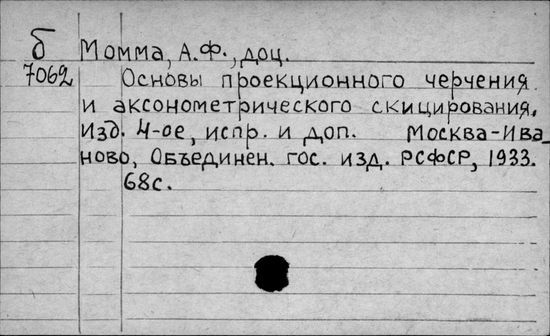 б Момма, А.Ф., доц.
7062 Основы проекционного черчения
и аксонометрического скицирования.
Изд. 4-ое, испр. и доп. Москва-Ива
ново, Объединен. гос. изд. РСФСР, 1933.
68с.